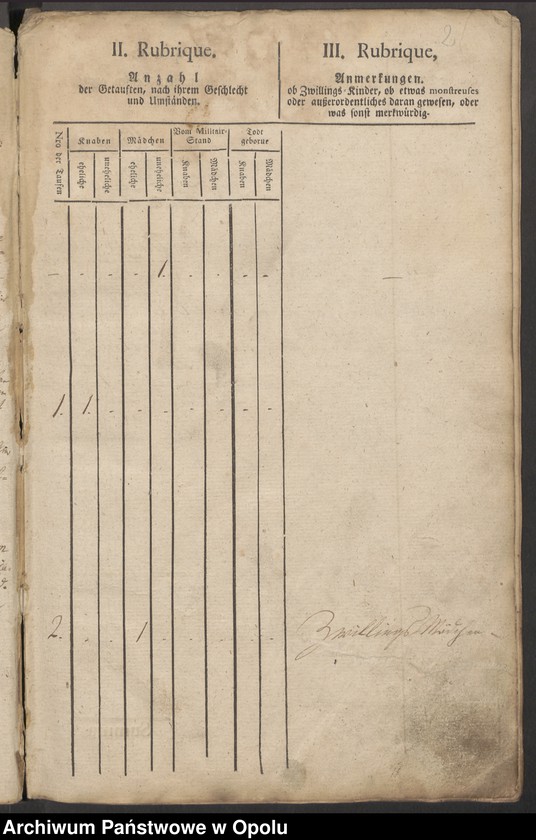 2
II. Rubrique.
Anzahl
der Getauften, nach ihrem Geschlecht
und Umständen.
III. Rubrique,
Anmerkungen.
ob Zwillings-Kinder, ob etwas monstreuses
oder außerordentliches daran gewesen, oder
was sonst merkwürdig.
Nro der Taufen
Knaben
Mädchen
Vom Militair-
Stand
Todt
geborne
eheliche
uneheliche
eheliche
uneheliche
Knaben
Mädchen
Knaben
Mädchen
- - - - 1. - - - - —
1. 1. - - - - - - -
2. - - 1 - - - - - Zwillings Mädchen -
Archiwum Państwowe w Opolu